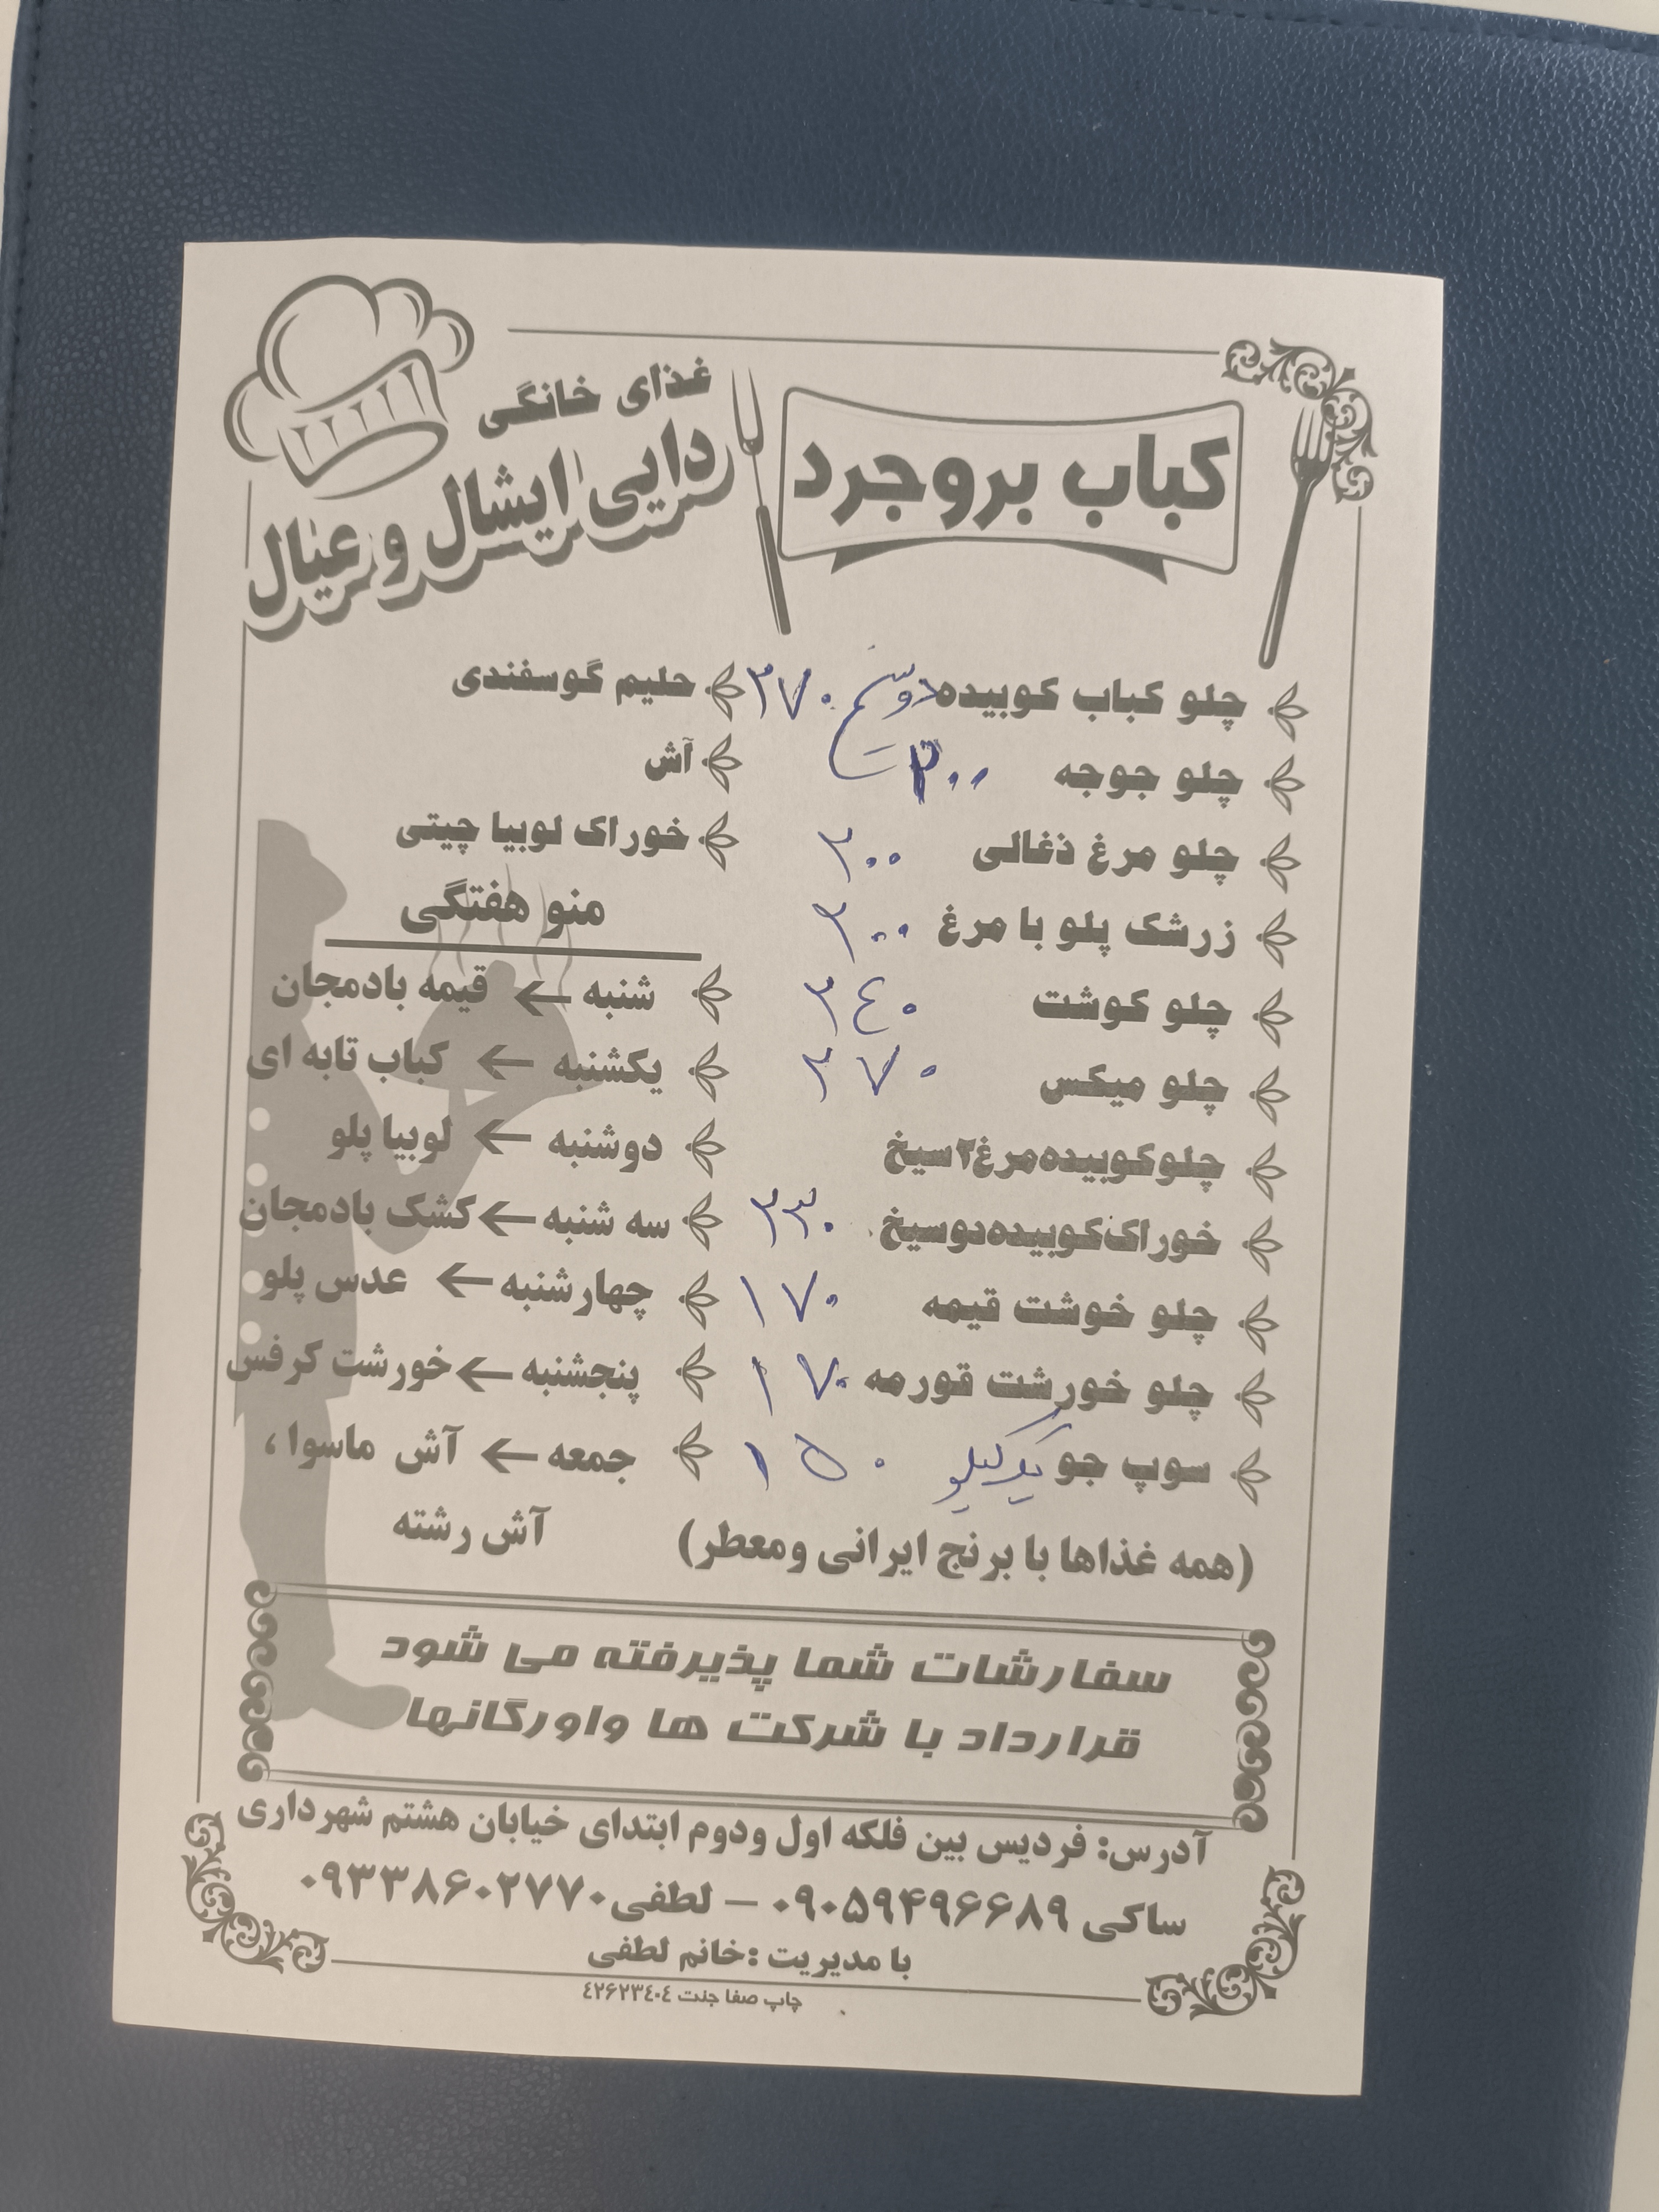 کباب بروجرد
غذای خانگی
دایی ایشال و عیال
چلو کباب کوبیده دو سیخ ۳۷۰
چلو جوجه ۳۰۰
چلو مرغ ذغالی ۲۰۰
زرشک پلو با مرغ ۲۰۰
چلو گوشت ۲۴۰
چلو میکس ۲۷۰
چلو کوبیده مرغ ۲ سیخ
خوراک کوبیده دو سیخ ۲۲۰
چلو خوشت قیمه ۱۷۰
چلو خورشت قورمه ۱۷۰
سوپ جو یک کیلو ۱۵۰
(همه غذاها با برنج ایرانی ومعطر)
حلیم گوسفندی
آش
خوراک لوبیا چیتی
منو هفتگی
شنبه ← قیمه بادمجان
یکشنبه ← کباب تابه ای
دوشنبه ← لوبیا پلو
سه شنبه ← کشک بادمجان
چهارشنبه ← عدس پلو
پنجشنبه ← خورشت کرفس
جمعه ← آش ماسوا ،
آش رشته
سفارشات شما پذیرفته می شود
قرارداد با شرکت ها واورگانها
آدرس: فردیس بین فلکه اول ودوم ابتدای خیابان هشتم شهرداری
ساکی ۰۹۰۵۹۴۹۶۶۸۹ – لطفی ۰۹۳۳۸۶۰۲۷۷۰
با مدیریت :خانم لطفی
چاپ صفا جنت ۴۲۶۲۳۴۰۴